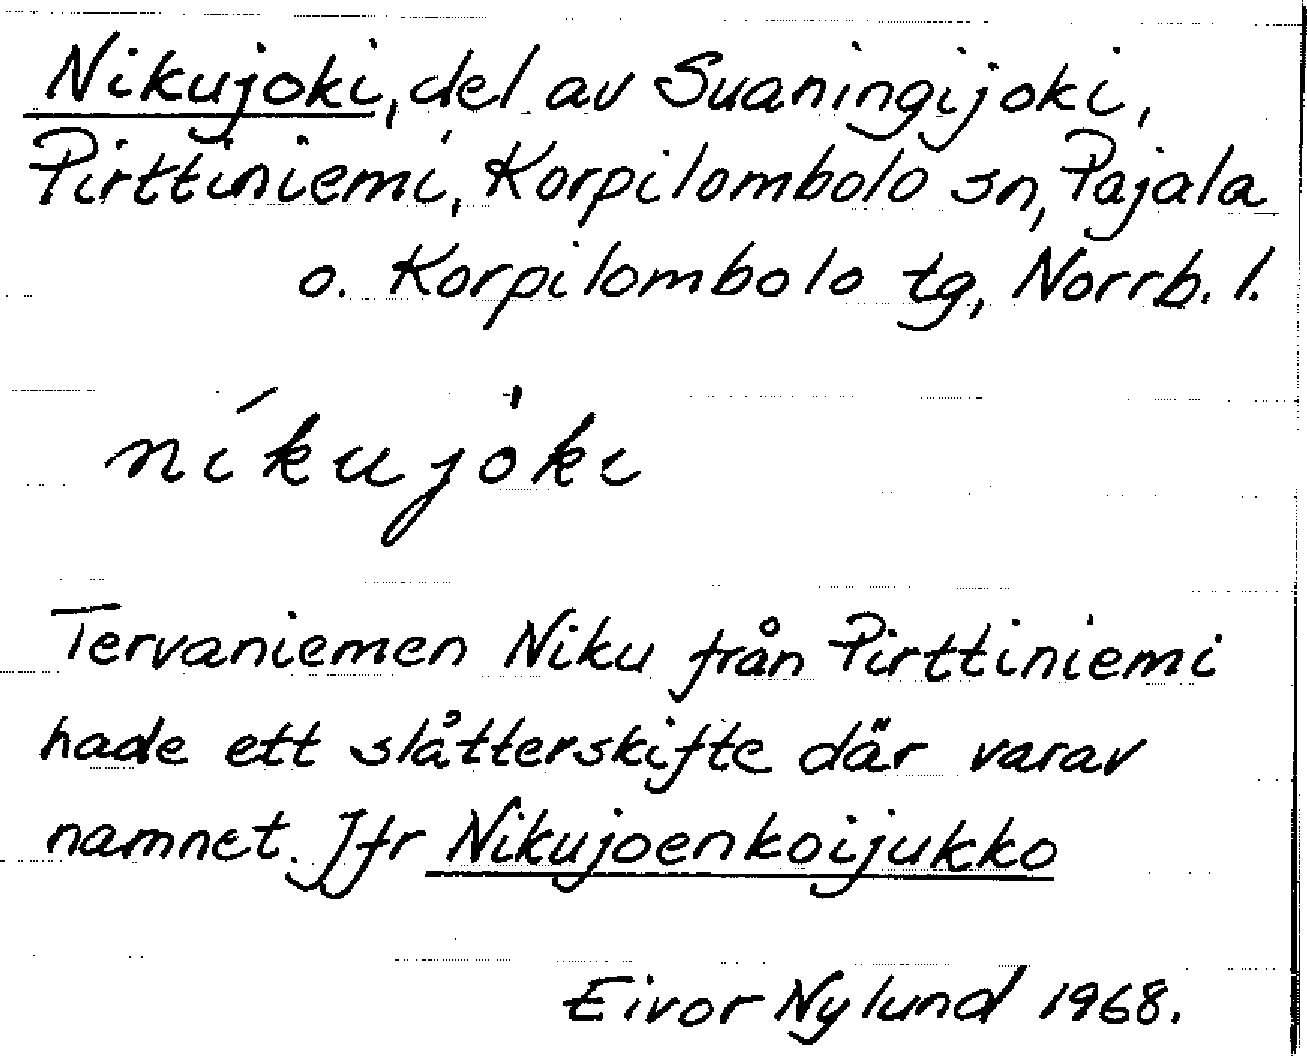 Nikujoki, del av Suaningijoki,
Pirttiniemi, Korpilombolo sn, Pajala
o. Korpilombolo tg, Norrb. l.
níkujòki
Tervaniemen Niku från Pirttiniemi
hade ett slåtterskifte där varav
namnet. Jfr Nikujoenkoijukko
Eivor Nylund 1968.